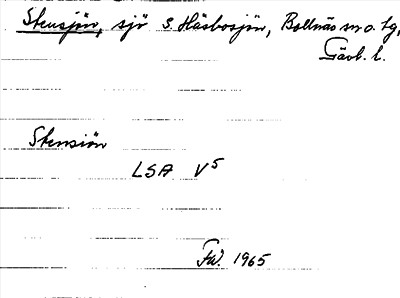 Stensjön, sjö S. Häsbosjön, Bollnäs sn o. tg,
Gävl. l.
Stensjön
LSA V5
Fw. 1965